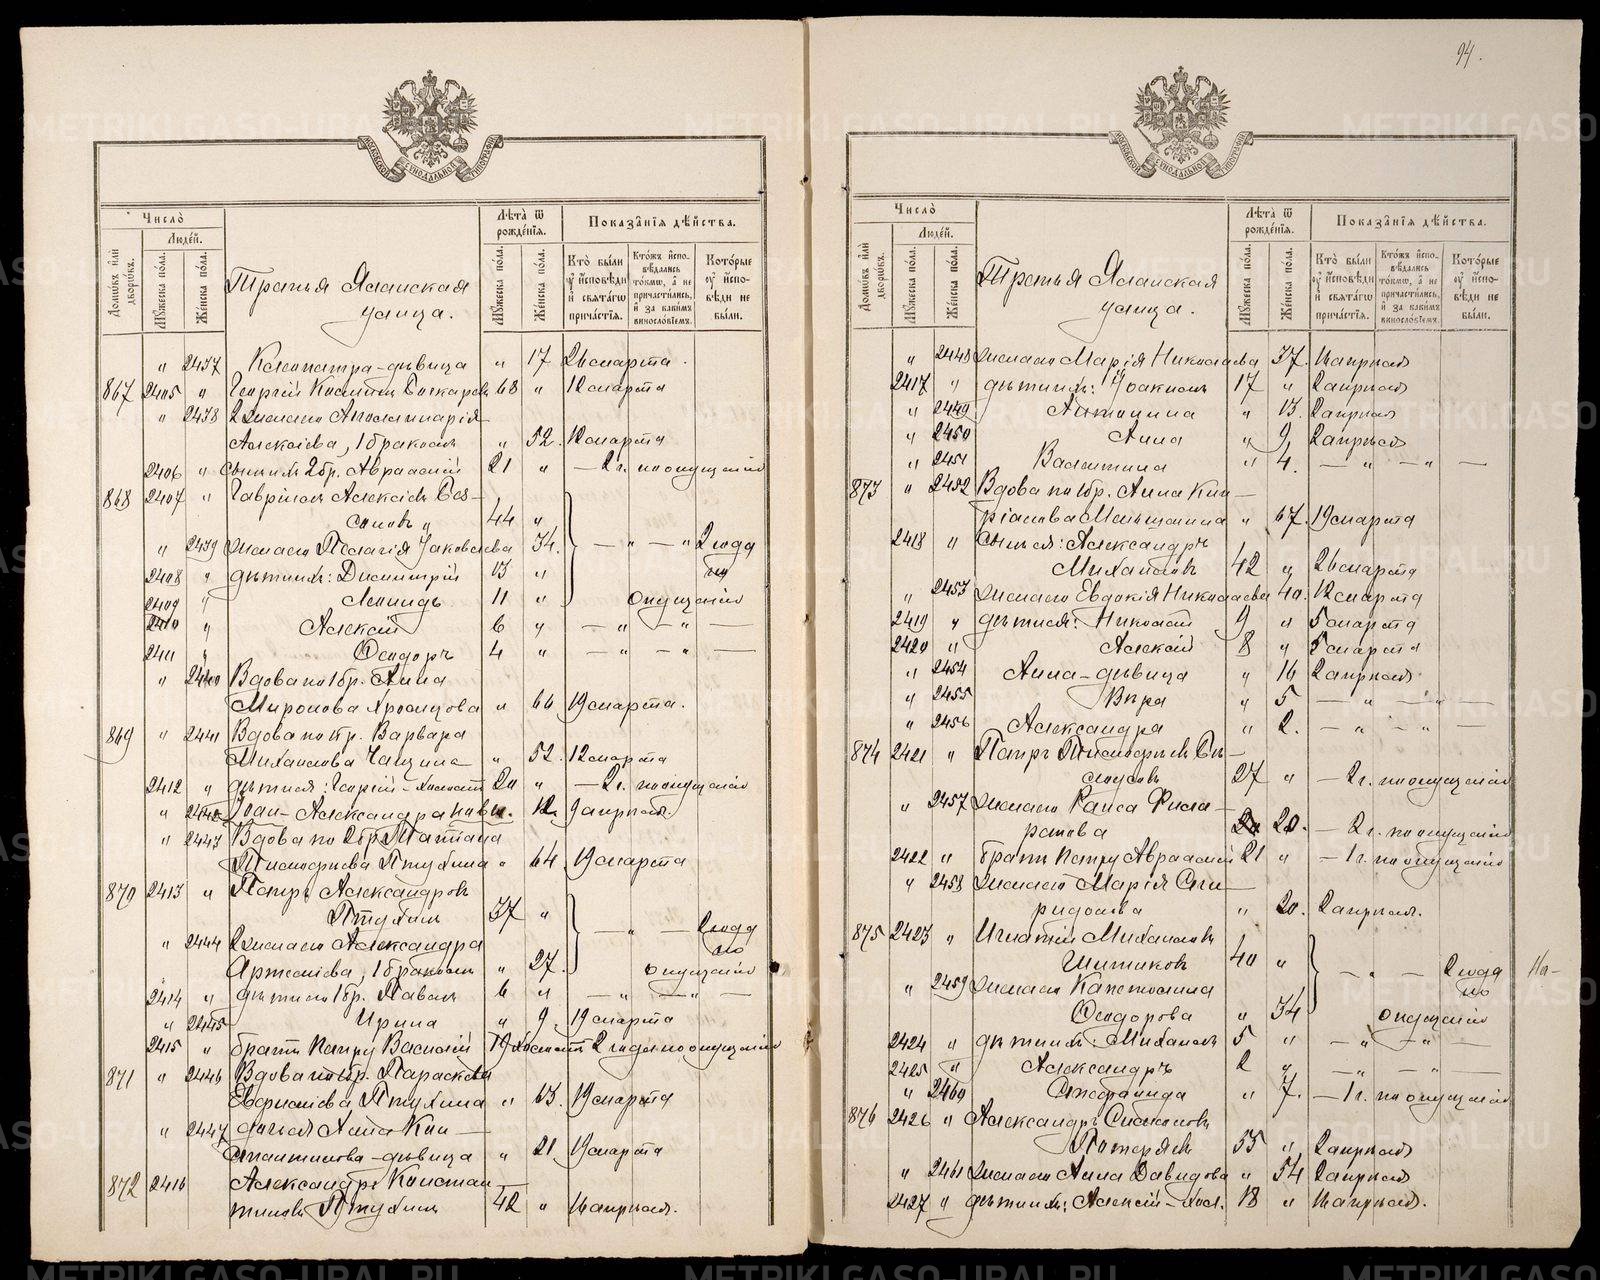 94.
Московской Сѵнодальной Типографіи
Число̀
Людей.
Домѡвъ и҆лѝ дворѡвъ.
Мꙋжеска пола.
Женска пола.
Третья Ясашская
улица.
Лѣта̀ ѿ рожденїѧ.
Мꙋжеска пола.
Женска пола.
Показанїѧ дѣйства.
Кто̀ были оу҆ и҆сповѣди и҆ свѧтагѡ причастїѧ.
Ктожъ и҆сповѣдались токмѡ, а҆ не причастились, и҆ за какимъ винословїемъ.
Которые оу҆ и҆сповѣди не были.
„ 2437 Клеопатра - дѣвица „ 17 26 марта.
867 2405 „ Георгій Косминъ 68 „ 12 марта
„ 2438 2 жена его Аполлинарія
Алексѣева, 1 бракомъ „ 52. 12 марта
2406 „ сынъ ихъ 2 бр. Авраамій 21 „ — 2 г. по опущенію
868 2407 „ Гавріилъ Алексѣевъ
44 „
„ 2439 жена его Пелагія Яковлева „ 34. — „ — „ 2 года
2408 „ дѣти ихъ: Димитрій 13 „ по
2409 „ Леонидъ 11 „ опущенію
2410 „ Алексій 6 „ — „ — „ —
2411 „ Ѳеодоръ 4 „ — „ — „ —
„ 2440 Вдова по 1 бр. Анна
Миронова Хромцова „ 66 19 марта.
869 „ 2441 Вдова по 1 бр. Варвара
Михаилова „ 52. 12 марта
2412 „ дѣти ея: Георгій - холостъ 20 „ — 2 г. по опущенію
„ Александра „ 12. 9 апрѣля.
„ 2443 Вдова по 2 бр. Татіана
Тимоѳеева Птухина „ 64. 19 марта
870 2413 „ Петръ Александровъ
Птухинъ 37 „
„ 2444 2 жена его Александра — „ — 2 года по
Артеміева, 1 бракомъ „ 27. опущенію
2414 „ дѣти его 1 бр. Павелъ 6 „ — „ — „ —
„ 2445 Ирина „ 9 19 марта
2415 „ братъ Петру Василій 19 холостъ 2 года по опущенію
871 „ 2446 Вдова по 1 бр. Параскева
Евфиміева Птухина „ 63. 19 марта
„ 2447 дочь ея Анна Кон-
стантинова - дѣвица „ 21 19 марта
872 2416 Александръ Констан-
тиновъ Птухинъ 42 „ 16 апрѣля.
Число̀
Людей.
Домѡвъ и҆лѝ дворѡвъ.
Мꙋжеска пола.
Женска пола.
Третья Ясашская
улица.
Лѣта̀ ѿ рожденїѧ.
Мꙋжеска пола.
Женска пола.
Показанїѧ дѣйства.
Кто̀ были оу҆ и҆сповѣди и҆ свѧтагѡ причастїѧ.
Ктожъ и҆сповѣдались токмѡ, а҆ не причастились, и҆ за какимъ винословїемъ.
Которые оу҆ и҆сповѣди не были.
„ 2448 жена его Марія Николаева 37. 16 апрѣля
2417 „ дѣти ихъ: Іоакимъ 17 „ 2 апрѣля
„ 2449 Антонина „ 13. 2 апрѣля
„ 2450 Анна „ 9. 2 апрѣля
„ 2451 Валентина „ 4. — „ — „ —
873 „ 2452 Вдова по 1 бр. Анна Кип-
ріанова Меньшенина „ 67. 19 марта
2418 „ сынъ ея: Александръ
Михаиловъ 42 „ 26 марта
„ 2453 жена его Евдокія Николаева 40. 12 марта
2419 „ дѣти ея: Николай 9 „ 5 марта
2420 „ Алексій 8 „ 5 марта
„ 2454 Анна - дѣвица „ 16 2 апрѣля.
„ 2455 Вѣра „ 5 — „ — „ —
„ 2456 Александра „ 2. — „ — „ —
874 2421 „ Петръ Тимоѳеевъ Бѣ-
лоусовъ 27 „ — 2 г. по опущенію
„ 2457 жена его Раиса Фила-
ретова 20. — 2 г. по опущенію
2422 „ братъ Петру Авраамій 21 „ — 1 г. по опущенію
„ 2458 жена его Марія Спи-
ридонова „ 20. 2 апрѣля.
875 2423 „ Игнатій Михаиловъ
Шитиковъ 40 „ — „ — 2 года
„ 2459 жена его Капетолина по
Ѳеодорова „ 34 опущенію
2424 „ дѣти ихъ: Михаилъ 5 „ — „ — „ —
2425 „ Александръ 2 „ — „ — „ —
„ 2460 Стефанида „ 7. — 1 г. по опущенію
876 2426 „ Александръ Симеоновъ
55 „ 2 апрѣля
„ 2461 жена его Анна Давидова „ 54 2 апрѣля
2427 „ дѣти ихъ: Алексій - хол. 18 „ 16 апрѣля.
METRIKI.GASO-URAL.RU